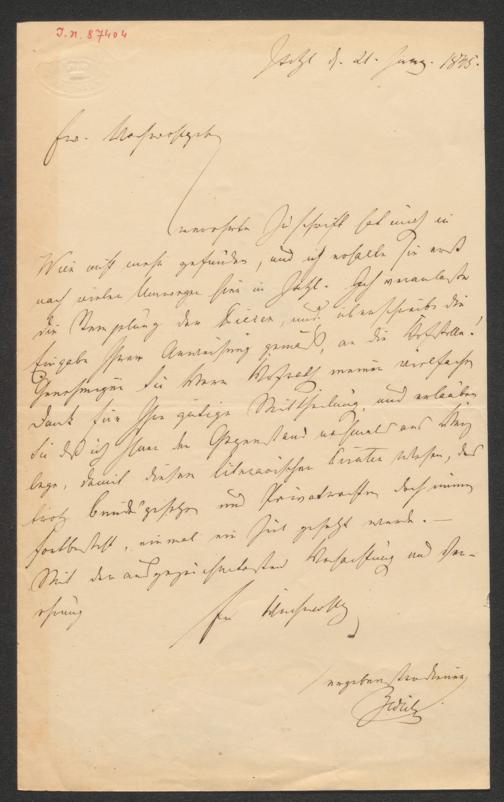 I.N. 87404
Ischl d. 21. Juny. 1845.
Euer Hochwohlgeb
verehrte Zuschrift hat mich in
Wien nicht mehr gefunden, und ich erhalte sie erst
nach vielen Umwegen hier in Ischl. Ich veranlasse
die Stemplung der Piecen, und überschreibe die
Eingabe Ihrer Anweisung gemäß, an die Hofstelle!
Genehmigen Sie Herr Hofrath meinen vielfachen
Dank für Ihre gütige Mittheilung, und erlauben
Sie daß ich Ihnen den Gegenstand nochmals ans Herz
lege, damit diesem literarischen Piraten Wesen, das
trotz Bundesgesetzen und Privatrechten doch immer
fortbesteht, einmal ein Ziel gesetzt werde. —
Mit der ausgezeichnetesten Hochachtung und Ver-
ehrung
Eur Hochwohlg
ergebenster Diener
Zedlitz